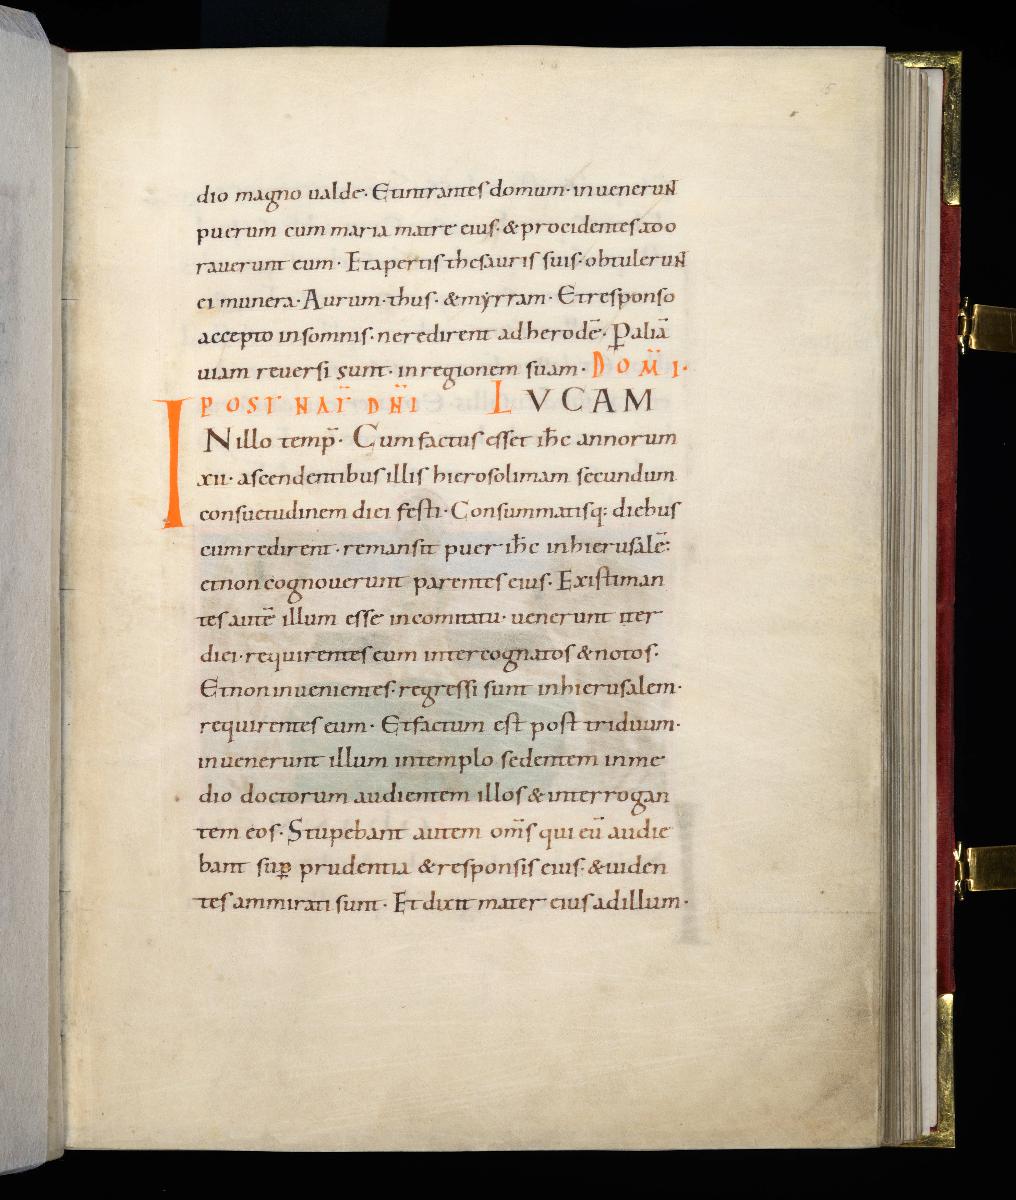 dio magno ualde· Et intrantes domum· inuenerun̄t
puerum cum maria matre eius· & procidentes ado
rauerunt eum· Et apertis thesauris suis· obtulerunt
ei munera· Aurum· thus· & myrram· Et responso
accepto in somnis· ne redirent ad herodē· P aliā
uiam reuersi sunt· in regionem suam· DOM̄ I·
POST NAT̄ DN̄I LVCAM
IN illo temp̄· Cum factus esset ih̄c annorum
xii· ascendentibus illis hierosolimam secundum
consuetudinem diei festi· Consummatisq: diebus
cum redirent· remansit puer ih̄c in hierusalē:
et non cognouerunt parentes eius· Existiman
tes autē illum esse in comitatu· uenerunt iter
diei· requirentes eum inter cognatos & notos·
Et non inuenientes· regressi sunt in hierusalem·
requirentes eum· Et factum est post triduum·
inuenerunt illum in templo sedentem in me
dio doctorum audientem illos & interrogan
tem eos· Stupebant autem om̄s qui eū audie
bant sup̄ prudentia & responsis eius· & uiden
tes ammirati sunt· Et dixit mater eius ad illum·